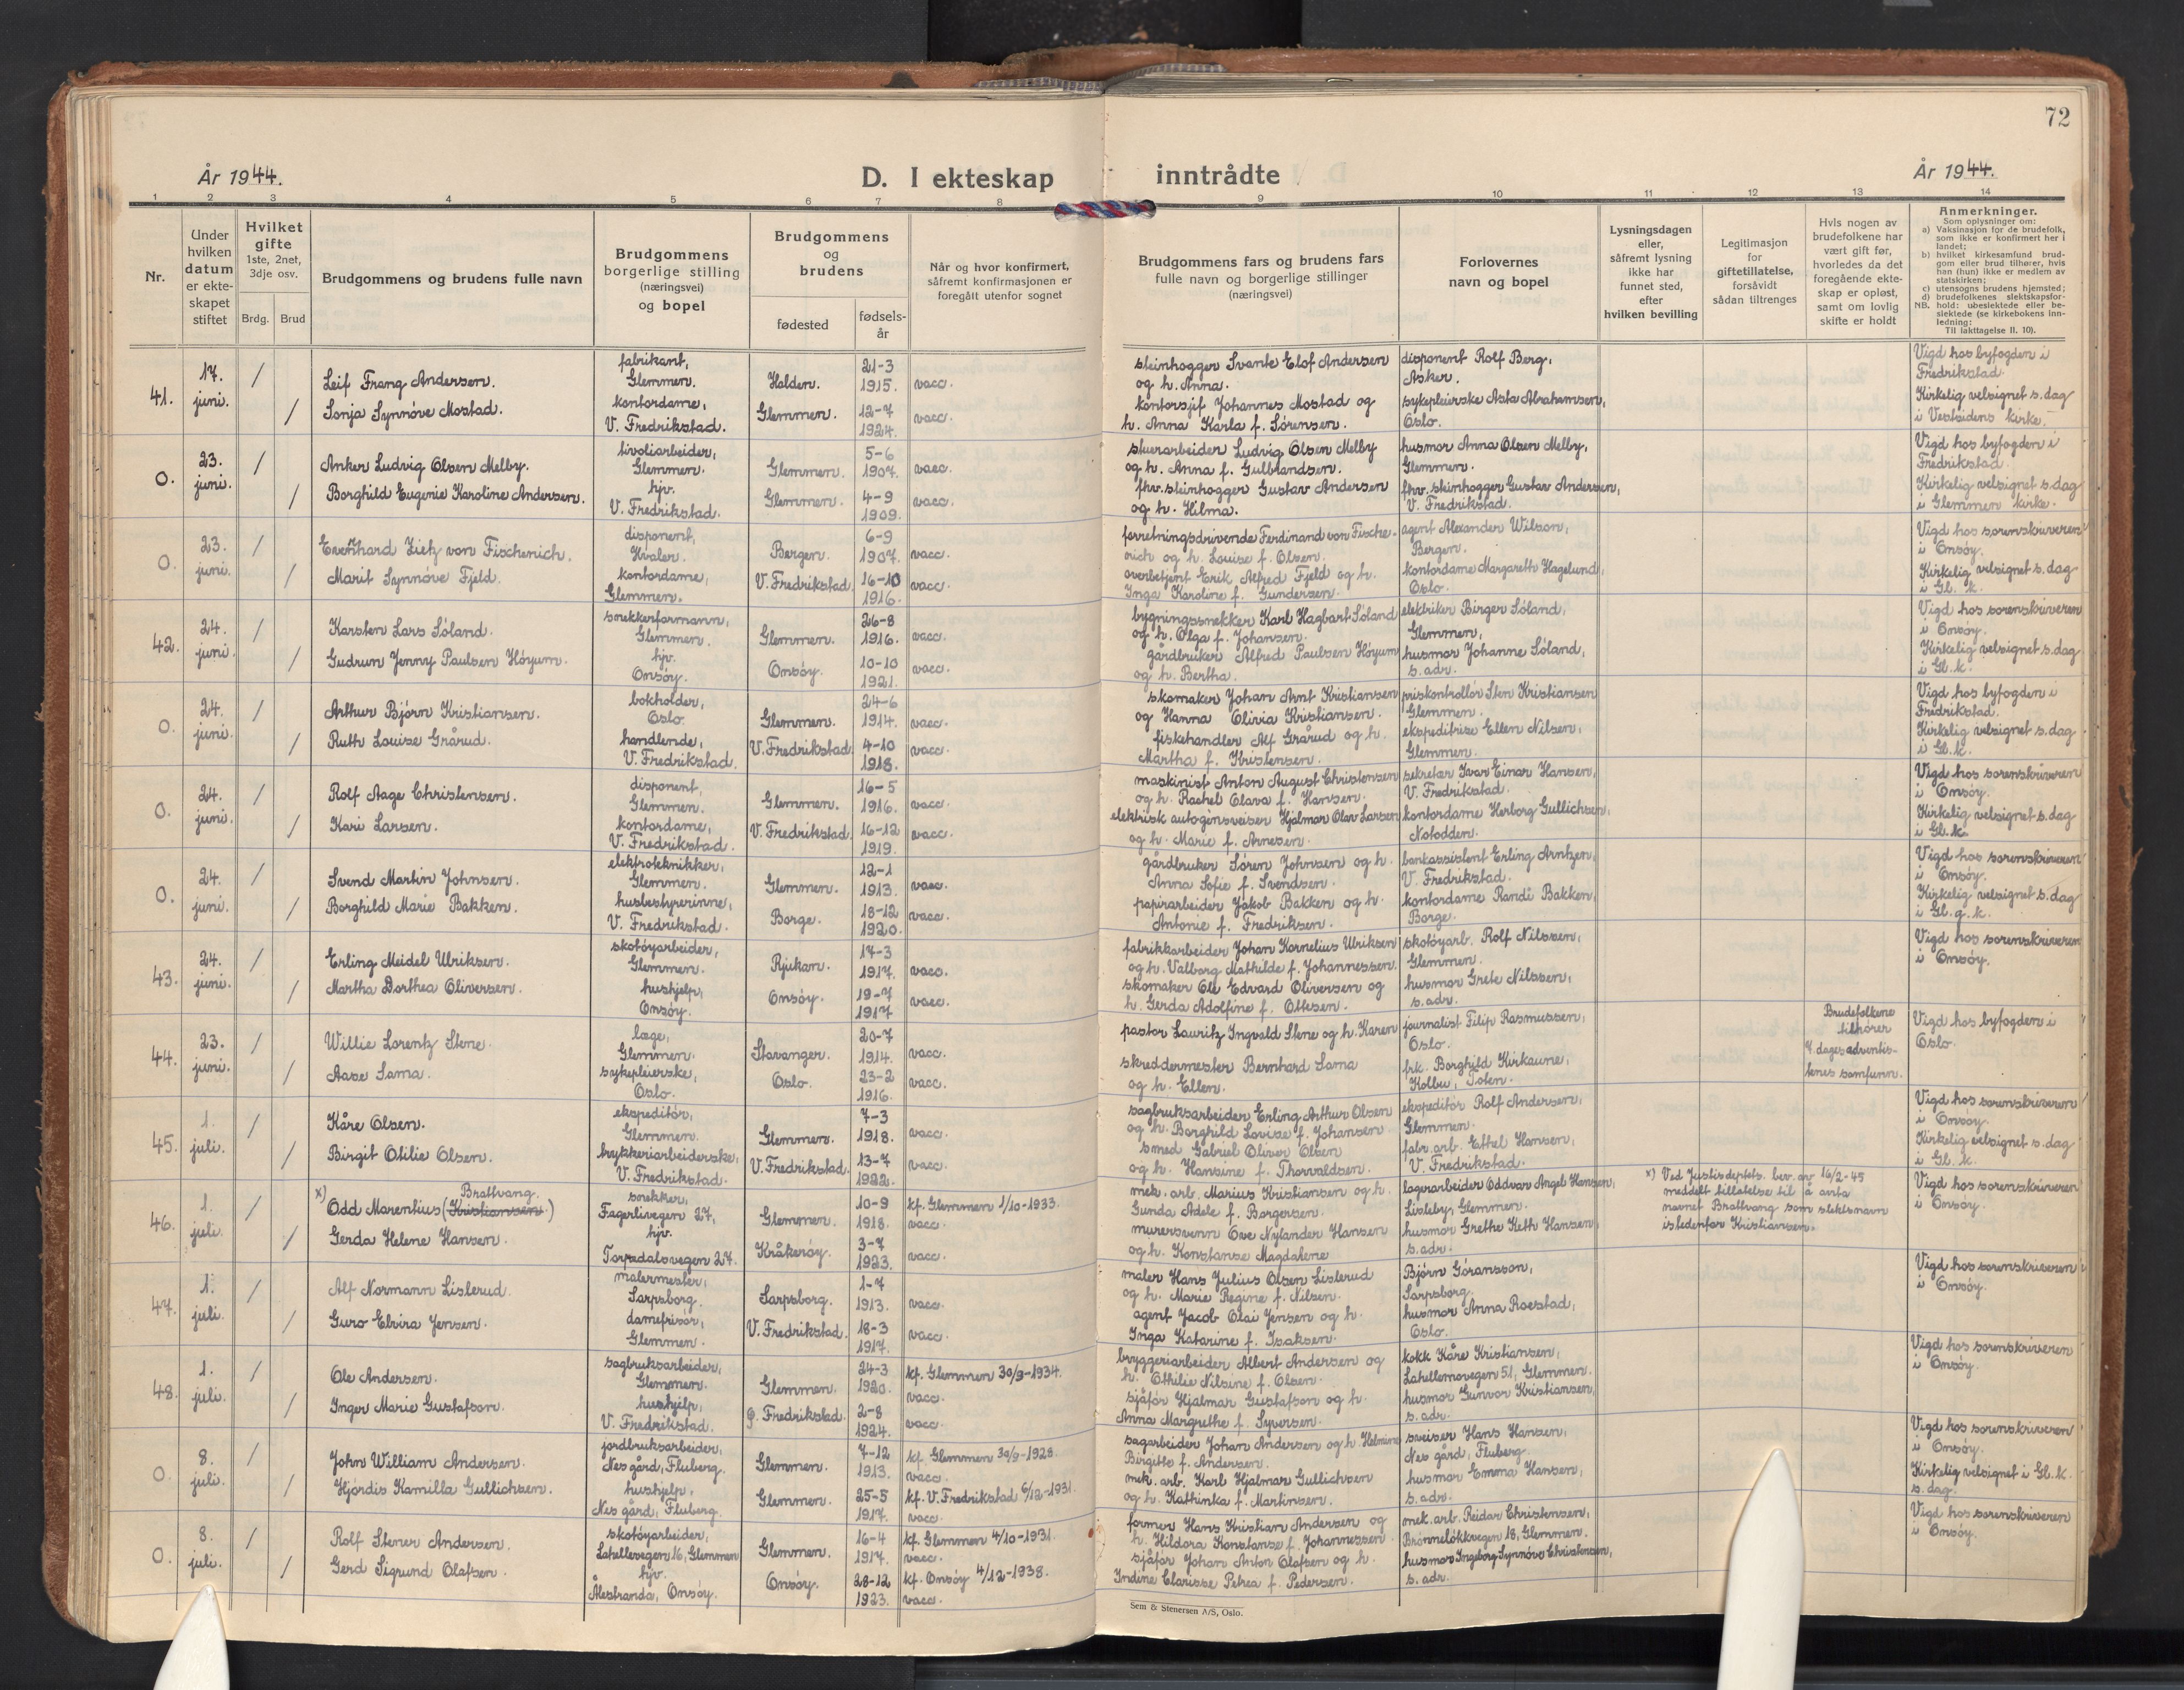 72
År 1944.
D. I ekteskap inntrådte
År 1944.
1 2 3 4 5 6 7 8 9 10 11 12 13 14
Nr.
Under
hvilken
datum
er ekte-
skapet
stiftet
Hvilket
gifte
1ste, 2net,
3dje osv.
Brdg. Brud
Brudgommens og brudens fulle navn
Brudgommens
borgerlige stilling
(næringsvei)
og bopel
Brudgommens
og
brudens
fødested
fødsels-
år
Når og hvor konfirmert,
såfremt konfirmasjonen er
foregått utenfor sognet
Brudgommens fars og brudens fars
fulle navn og borgerlige stillinger
(næringsvei)
Forlovernes
navn og bopel
Lysningsdagen
eller,
såfremt lysning
ikke har
funnet sted,
efter
hvilken bevilling
Legitimasjon
for
giftetillatelse,
forsåvidt
sådan tiltrenges
Hvis nogen av
brudefolkene har
vært gift før,
hvorledes da det
foregående ekte-
skap er opløst,
samt om lovlig
skifte er holdt
Anmerkninger.
Som oplysninger om:
a) Vaksinasjon for de brudefolk,
som ikke er konfirmert her i
landet;
b) hvilket kirkesamfund brud-
gom eller brud tilhører, hvis
han (hun) ikke er medlem av
statskirken;
c) utensogns brudens hjemsted;
d) brudefolkenes slektskapsfor-
NB. hold: ubeslektede eller be-
slektede (se kirkebokens inn-
ledning:
Til iakttagelse II. 10).
41.
17.
juni.
/
/
Leif Frang Andersen.
Sonja Synnöve Mostad.
fabrikant,
Glemmen.
kontordame,
V. Fredrikstad.
Halden.
Glemmen.
21-3
1915.
12-7
1924.
vacc.
vacc.
steinhogger Svante Elof Andersen
og h. Anna.
kontorsjef Johannes Mostad og
h. Anna Karla f. Sörensen.
disponent Rolf Berg,
Asker.
sykepleierske Asta Abrahamsen,
Oslo.
Vigd hos byfogden i
Fredrikstad.
Kirkelig velsignet s. dag
i Vestsidens kirke.
0.
23.
juni.
/
/
Anker Ludvig Olsen Melby.
Borghild Eugenie Karoline Andersen.
tivoliarbeider,
Glemmen.
hjv.
V. Fredrikstad.
Glemmen.
Glemmen.
5-6
1907.
4-9
1909.
vacc.
vacc.
stuerarbeider Ludvig Olsen Melby
og h. Anna f. Gulbrandsen.
fhv. steinhogger Gustav Andersen
og h. Hilma.
husmor Anna Olsen Melby,
Glemmen.
fhv. steinhogger Gustav Andersen,
V. Fredrikstad.
Vigd hos byfogden i
Fredrikstad.
Kirkelig velsignet s. dag
i Glemmen kirke.
0.
23.
juni.
/
/
Zietz von Fischenich.
Marit Synnöve Fjeld.
disponent,
Hvaler.
kontordame,
Glemmen.
Bergen.
V. Fredrikstad.
6-9
1907.
16-10
1916.
vacc.
vacc.
forretningsdrivende Ferdinand von Fische-
nich og h. Louise f. Olsen.
overbetjent Erik Alfred Fjeld og h.
Inga Karoline f. Gundersen.
agent Alexander Wilson,
Bergen.
kontordame Margareth Hagelund,
Oslo.
Vigd hos sorenskriveren
i Onsöy.
Kirkelig velsignet s. dag
i Gl. k.
42.
24.
juni.
/
/
Karsten Lars Söland.
Gudrun Jenny Paulsen Höyum.
snekkerformann,
Glemmen.
hjv.
Onsöy.
Glemmen.
Onsöy.
26-8
1916.
10-10
1921.
vacc.
vacc.
bygningssnekker Karl Hagbart Söland
og h. Olga f. Johansen.
gårdbruker Alfred Paulsen Höyum
og h. Bertha.
elektriker Birger Söland,
Glemmen,
husmor Johanne Söland,
s. adr.
Vigd hos sorenskriveren
i Onsöy.
Kirkelig velsignet s. dag
i Gl. k.
0.
24.
juni.
/
/
Arthur Björn Kristiansen.
Ruth Louise Grårud.
bokholder,
Oslo.
handlende,
V. Fredrikstad.
Glemmen.
V. Fredrikstad.
24-6
1914.
4-10
1918.
vacc.
vacc.
skomaker Johan Arnt Kristiansen
og Hanna Olivia Kristiansen.
fiskehandler Alf Grårud og h.
Martha f. Kristensen.
priskontrollör Sten Kristiansen
Glemmen.
ekspeditrise Ellen Nilsen,
Glemmen.
Vigd hos byfogden i
Fredrikstad.
Kirkelig velsignet s. dag
i Gl. k.
0.
24.
juni.
/
/
Rolf Aage Christensen.
Kari Larsen.
disponent,
Glemmen.
kontordame,
V. Fredrikstad.
Glemmen.
V. Fredrikstad.
16-5
1916.
16-12
1919.
vacc.
vacc.
maskinist Anton August Christensen
og h. Rachel Olava f. Hansen.
elektrisk autogensveiser Hjalmar Olav Larsen
og h. Marie f. Arnesen.
sekretær Ivar Einar Hansen,
V. Fredrikstad.
kontordame Herborg Gullichsen,
Notodden.
Vigd hos sorenskriveren
i Onsöy.
Kirkelig velsignet s. dag
i Gl. k.
0.
24.
juni.
/
/
Svend Martin Johnsen.
Borghild Marie Bakken.
elektroteknikker,
Glemmen.
husbestyrerinne,
V. Fredrikstad.
Glemmen.
Borge.
12-1
1913.
18-12
1920.
vacc.
vacc.
gårdbruker Sören Johnsen og h.
Anna Sofie f. Svendsen.
papirarbeider Jakob Bakken og h.
Antonie f. Fredriksen.
bankassistent Erling Arntzen,
V. Fredrikstad.
kontordame Randi Bakken,
Borge.
Vigd hos sorenskriveren
i Onsöy.
Kirkelig velsignet s. dag
i Gl. g. k.
43.
24.
juni.
/
/
Erling Meidel Ulriksen.
Martha Dorthea Oliversen.
skotöyarbeider,
Glemmen.
hushjelp,
Onsöy.
Rjukan.
Onsöy.
17-3
1917.
19-7
1917
vacc.
vacc.
fabrikkarbeider Johan Kornelius Ulriksen
og h. Valborg Mathilde f. Johannessen.
skomaker Ole Edvard Oliversen og
h. Gerda Adolfine f. Ottesen.
skotöyarb. Rolf Nilssen,
Glemmen.
husmor Grete Nilssen,
s. adr.
Vigd hos sorenskriveren
i Onsöy.
44.
23.
juni.
/
/
Willie Lorentz Stene.
Aase Sama.
læge,
Glemmen.
sykepleierske,
Oslo.
Stavanger.
Oslo.
20-7
1914.
23-2
1916.
vacc.
vacc.
pastor Lauritz Ingvald Stene og h. Karen
skreddermester Bernhard Sama
og h. Ellen.
journalist Filip Rasmussen,
Oslo.
frk. Borghild Kirkaune,
Kolbu, Toten.
Brudefolkene
tilhörer
7. dagesadventis-
tenes samfunn.
Vigd hos byfogden i
Oslo.
45.
1.
juli.
/
/
Kåre Olsen.
Birgit Otilie Olsen.
ekspeditör,
Glemmen.
trykkeriarbeiderske,
V. Fredrikstad.
Glemmen.
V. Fredrikstad.
7-3
1918.
13-7
1922.
vacc.
vacc.
sagbruksarbeider Erling Arthur Olsen
og h. Borghild Lovise f. Johansen
smed Gabriel Oliver Olsen
og h. Hansine f. Thorvaldsen.
ekspeditör Rolf Andersen,
Glemmen.
fabr. arb. Ethel Hansen,
V. Fredrikstad.
Vigd hos sorenskriveren
i Onsöy.
Kirkelig velsignet s. dag
i Gl. k.
46.
1.
juli.
/
/
Brattvang.
x) Odd Marentius (Kristiansen.)
Gerda Helene Hansen.
snekker,
Fagerlivegen 27,
hjv.
Torpedalsvegen 27.
Glemmen.
Kråkeröy.
10-9
1918.
3-7
1923.
kf. Glemmen 1/10-1933.
vacc.
vacc.
mek. arb. Marius Kristiansen og h.
Gunda Adele f. Borgersen.
murersvenn Ove Nylander Hansen
og h. Konstanse Magdalene
lagerarbeider Oddvar Angel Hansen,
Lisleby, Glemmen.
husmor Grethe Keth Hansen,
s. adr.
x) Ved Justisdeptets. bev. av 16/2-45
meddelt tillatelse til å anta
navnet Brattvang som slektsnavn
istedenfor Kristiansen.
Vigd hos sorenskriveren
i Onsöy.
47.
1.
juli.
/
/
Alf Normann Lislerud.
Guro Elvira Jensen.
malermester,
Sarpsborg.
damefrisör,
Glemmen.
Sarpsborg.
V. Fredrikstad.
1-7
1913.
18-3
1917.
vacc.
vacc.
maler Hans Julius Olsen Lislerud
og h. Marie Regine f. Nilsen.
agent Jacob Olai Jensen og h.
Inga Katarine f. Isaksen.
Björn Göransson,
Sarpsborg.
husmor Anna Roestad,
Oslo.
Vigd hos sorenskriveren
i Onsöy.
48.
1.
juli.
/
/
Ole Andersen.
Inger Marie Gustafson.
sagbruksarbeider,
Glemmen.
hushjelp,
V. Fredrikstad.
Glemmen.
Fredrikstad.
24-3
1920.
2-8
1924.
kf. Glemmen 30/9-1934.
vacc.
vacc.
bryggeriarbeider Albert Andersen og
h. Othilie Nilsine f. Olsen.
sjåför Hjalmar Gustafson og h.
Anna Margrethe f. Syversen.
kokk Kåre Kristiansen,
Lahellemovegen 51, Glemmen.
husmor Gunvor Kristiansen,
s. adr.
Vigd hos sorenskriveren
i Onsöy.
0.
8.
juli.
/
/
John William Andersen.
Hjördis Kamilla Gullichsen.
jordbruksarbeider,
Nes gård, Fluberg.
hushjelp,
Nes gård, Fluberg.
Glemmen.
Glemmen.
7-12
1913.
25-5
1917.
kf. Glemmen 30/9-1928.
vacc.
kf. V. Fredrikstad 6/12-1931.
vacc.
sagarbeider Johan Andersen og h. Helmine
Birgitte f. Andersen.
mek. arb. Karl Hjalmar Gullichsen
og h. Kathinka f. Martinsen.
sveiser Hans Hansen,
Nes gård, Fluberg.
husmor Emma Hansen,
s. adr.
Vigd hos sorenskriveren
i Onsöy.
Kirkelig velsignet i Gl. k.
s. dag.
0.
8.
juli.
/
/
Rolf Stener Andersen.
Gerd Sigrund Olafsen.
skotöyarbeider,
Lahellevegen 16, Glemmen
hjv.
Ålestranda, Onsöy.
Glemmen.
Onsöy.
16-4
1917.
28-12
1923.
kf. Glemmen 4/10-1931.
vacc.
kf. Onsöy 4/12-1938.
vacc.
former Hans Kristian Andersen og
h. Hildora Konstanse f. Johannessen
sjåför Johan Anton Olafsen og h.
Indine Clarisse Petrea f. Pedersen.
mek. arb. Reidar Christensen,
Brönnelökkvegen 18, Glemmen.
husmor Ingeborg Synnöve Christensen,
s. adr.
Vigd hos sorenskriveren
i Onsöy.
Sem & Stenersen A/S, Oslo.